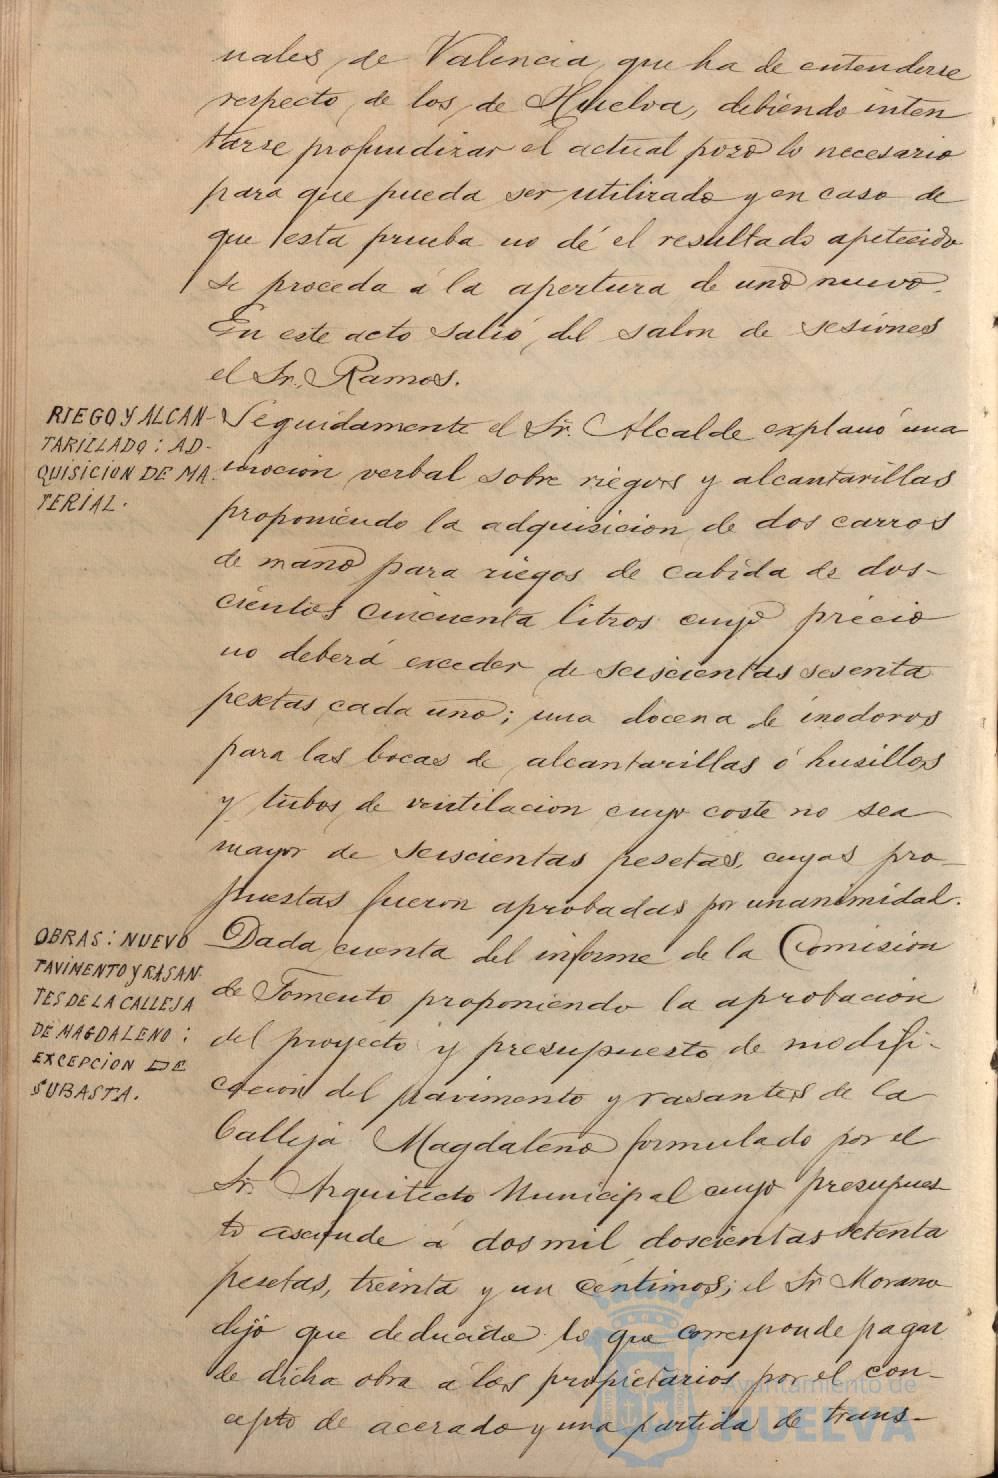 nales de Valencia, que ha de entenderse
respecto de los de Huelva, debiendo inten
tarse profundizar el actual pozo lo necesario
para que pueda ser utilizado y en caso de
que esta prueba no dé el resultado apetecido
se proceda á la apertura de uno nuevo.
En este acto salió del salon de sesiones
el Sr. Ramos.
RIEGO Y ALCAN-
TARILLADO: AD-
QUISICION DE MA-
TERIAL.
Seguidamente el Sr. Alcalde explanó una
mocion verbal sobre riegos y alcantarillas
proponiendo la adquisicion de dos carros
de mano para riegos de cabida de dos-
cientos cincuenta litros cuyo précio
no deberá exceder de seiscientas sesenta
pesetas cada uno; una docena de inodoros
para las bocas de alcantarillas ó husillos
y tubos de ventilacion cuyo coste no sea
mayor de seiscientas pesetas, cuyas pro-
puestas fueron aprobadas por unanimidad.
OBRAS: NUEVO
PAVIMENTO Y RASAN-
TES DE LA CALLEJA
DE MAGDALENO:
EXCEPCION DE
SUBASTA.
Dada cuenta del informe de la Comision
de Fomento proponiendo la aprobacion
del proyecto y presupuesto de modifi-
cacion del pavimento y rasantes de la
Calleja Magdaleno formulado por el
Sr. Arquitecto Municipal cuyo presupues-
to asciende á dos mil doscientas setenta
pesetas, treinta y un céntimos; el Sr Morano
dijo que deducido lo que corresponde pagar
de dicha obra á los propietarios por el con-
cepto de acerado y una partida de trans-
Ayuntamiento de
HUELVA